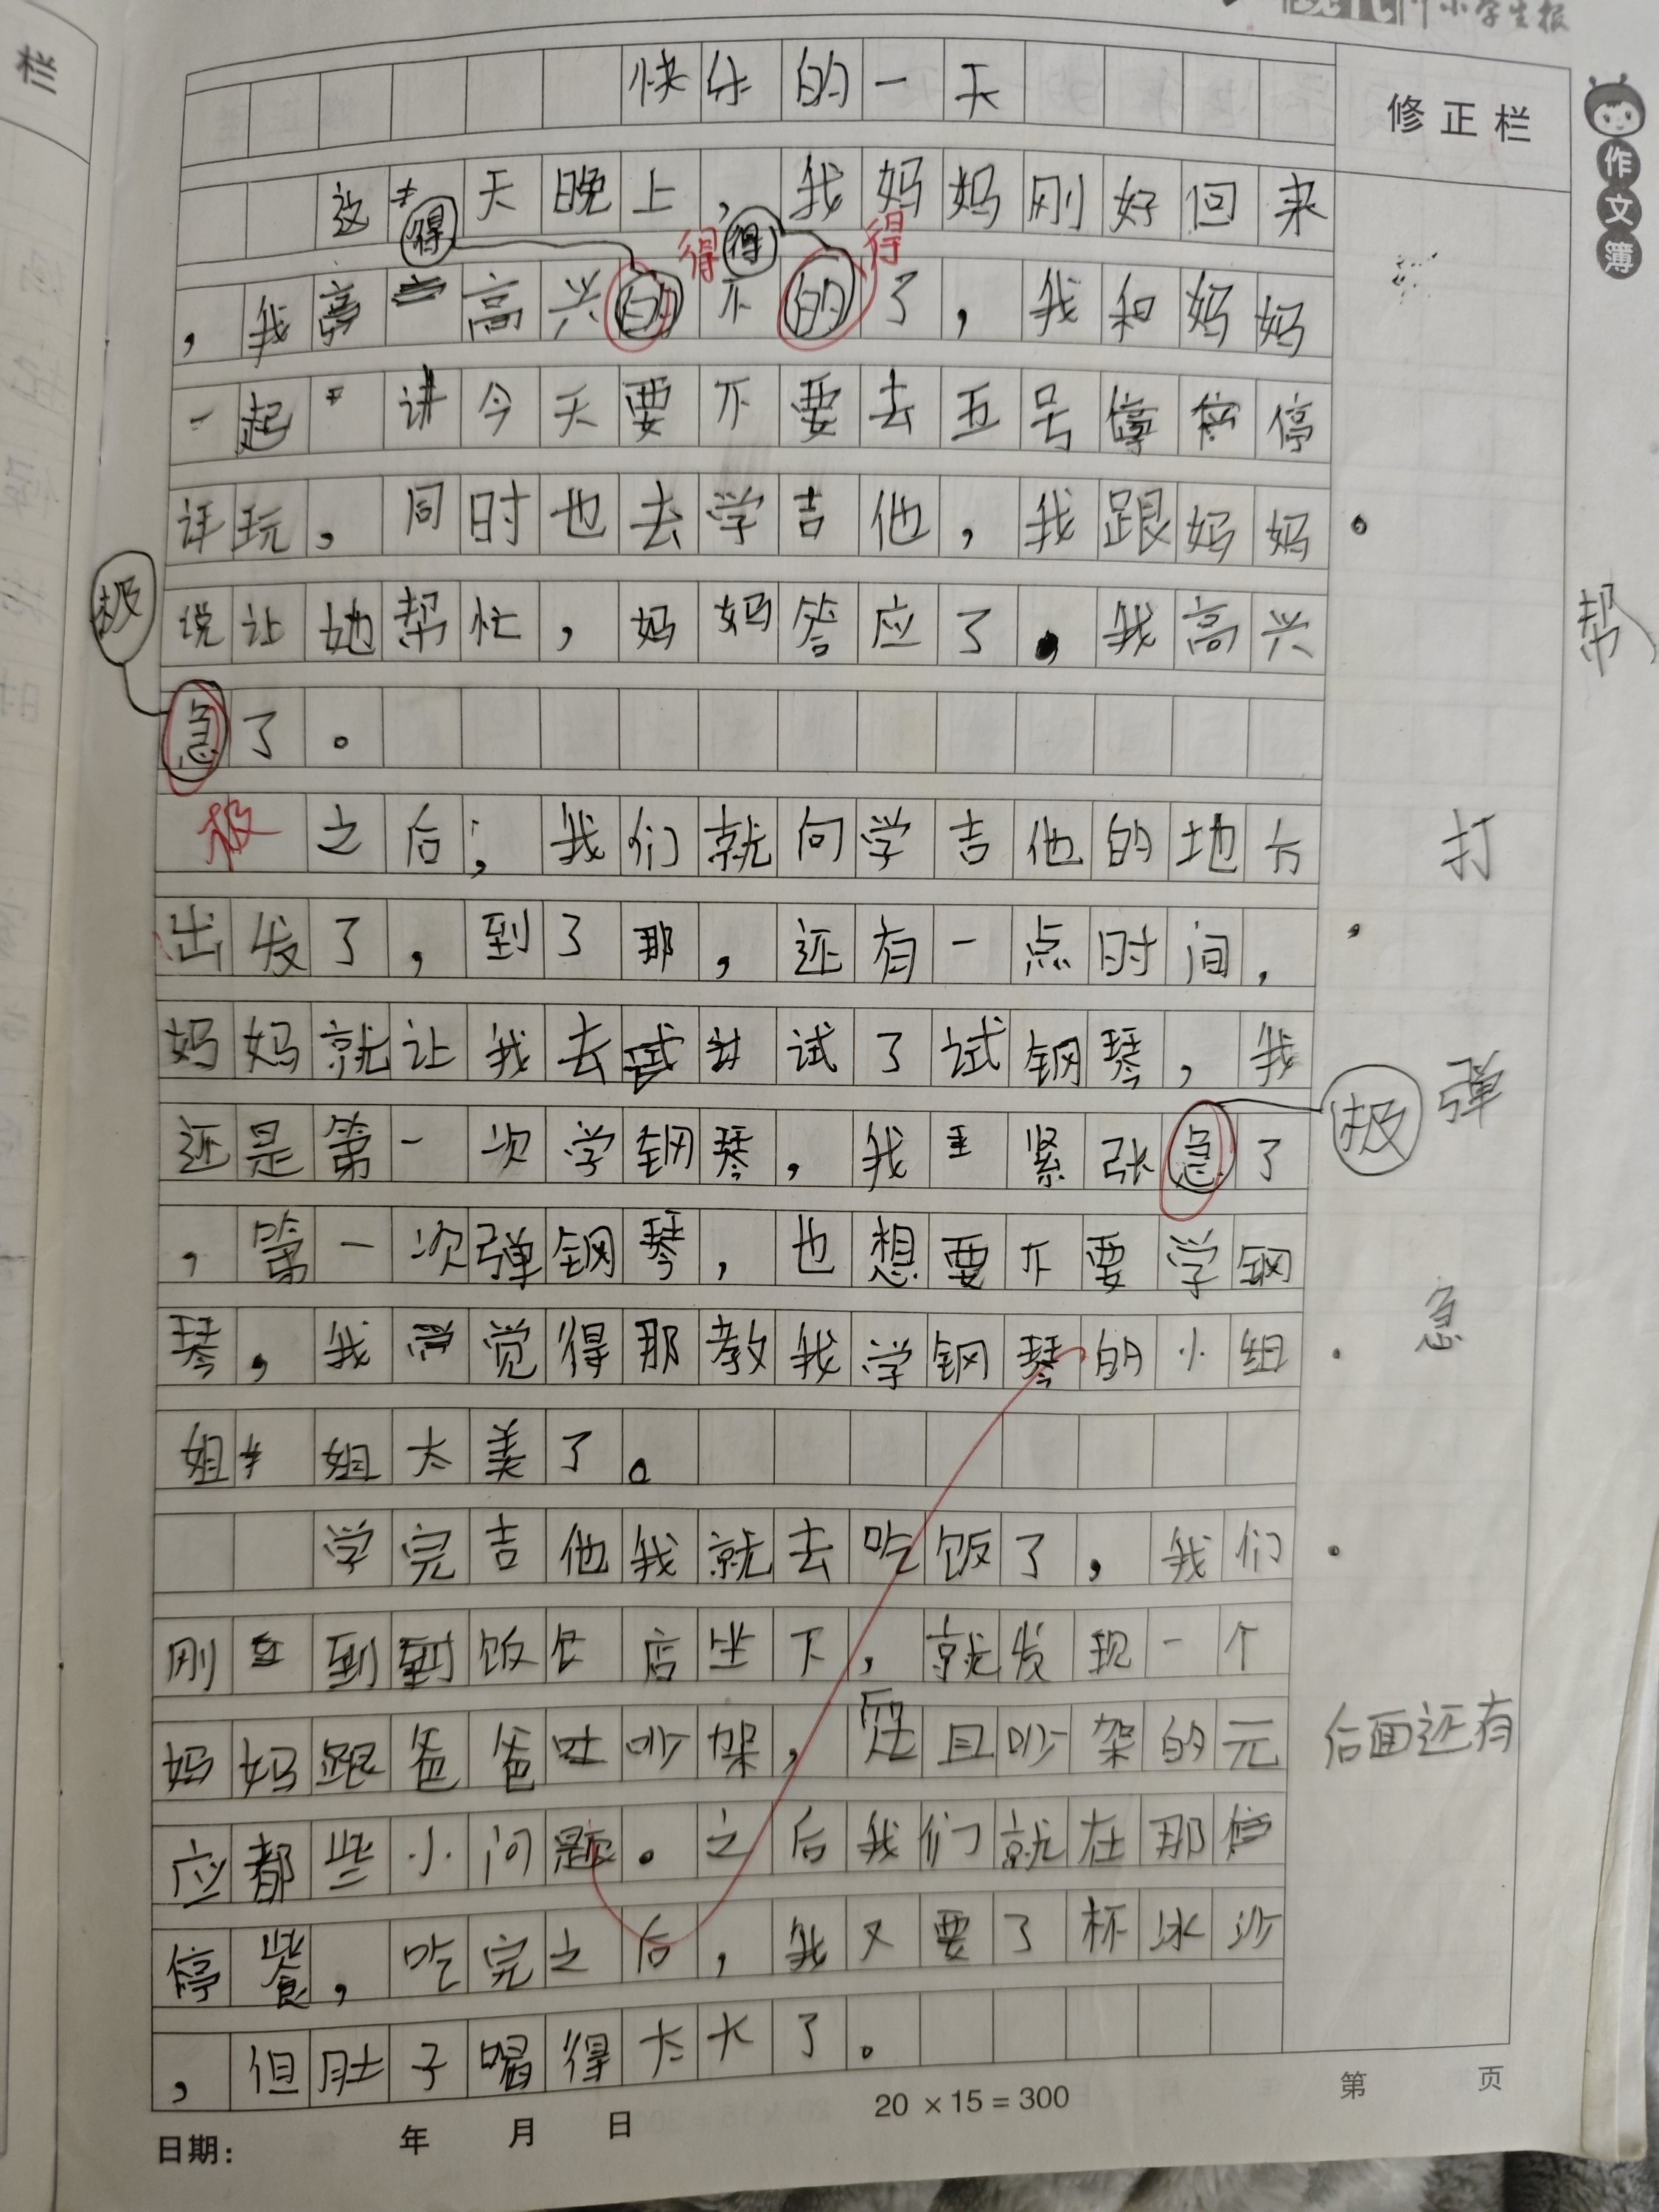 栏
小学生报
快乐的一天
修正栏
作文簿
这天晚上，我妈妈刚好回来
得 得 得 得
，我高兴的不的了，我和妈妈
一起讲今天要不要去五号停停
玩，同时也去学吉他，我跟妈妈。
极 说让她帮忙，妈妈答应了，我高兴
帮
急了。
极 之后，我们就向学吉他的地方
打
出发了，到了那，还有一点时间，
妈妈就让我去试了试钢琴，我
极 弹
还是第一次学钢琴，我紧张急了
，第一次弹钢琴，也想要不要学钢
急
琴，我觉得那教我学钢琴的小组
姐姐太美了。
学完吉他我就去吃饭了，我们
刚到饭店坐下，就发现一个
妈妈跟爸爸吵架，且吵架的元
后面还有
应都些小问题。之后我们就在那
停餐，吃完之后，我又要了杯冰沙
，但肚子喝得太大了。
20×15=300
第 页
日期： 年 月 日